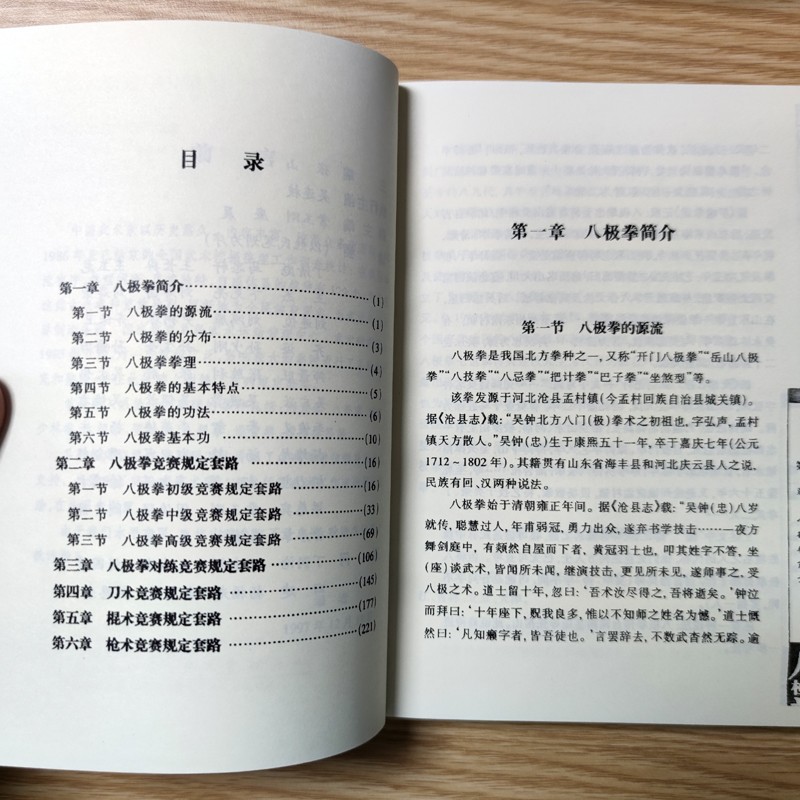 目 录
第一章 八极拳简介……………………(1)
第一节 八极拳的源流…………………(1)
第二节 八极拳的分布…………………(3)
第三节 八极拳拳理……………………(4)
第四节 八极拳的基本特点……………(5)
第五节 八极拳的功法…………………(6)
第六节 八极拳基本功…………………(10)
第二章 八极拳竞赛规定套路…………(16)
第一节 八极拳初级竞赛规定套路……(16)
第二节 八极拳中级竞赛规定套路……(33)
第三节 八极拳高级竞赛规定套路……(69)
第三章 八极拳对练竞赛规定套路……(106)
第四章 刀术竞赛规定套路……………(145)
第五章 棍术竞赛规定套路……………(177)
第六章 枪术竞赛规定套路……………(221)
第一章 八极拳简介
第一节 八极拳的源流
八极拳是我国北方拳种之一，又称“开门八极拳”“岳山八极
拳”“八技拳”“八忌拳”“把计拳”“巴子拳”“坐煞型”等。
该拳发源于河北沧县孟村镇（今孟村回族自治县城关镇）。
据《沧县志》载：“吴钟北方八门（极）拳术之初祖也，字弘声，孟村
镇天方散人。”吴钟（忠）生于康熙五十一年，卒于嘉庆七年（公元
1712～1802年）。其籍贯有山东省海丰县和河北庆云县人之说，
民族有回、汉两种说法。
八极拳始于清朝雍正年间。据《沧县志》载：“吴钟（忠）八岁
就传，聪慧过人，年甫弱冠，勇力出众，遂弃书学技击………一夜方
舞剑庭中，有颏然自屋而下者，黄冠羽士也，叩其姓字不答，坐
（座）谈武术，皆闻所未闻，继演技击，更见所未见，遂师事之，受
八极之术。道士留十年，忽曰：‘吾术汝尽得之，吾将逝矣。’钟泣
而拜曰：‘十年座下，贶我良多，惟以不知师之姓名为憾。’道士慨
然曰：‘凡知癞字者，皆吾徒也。’言罢辞去，不数武杳然无踪。逾